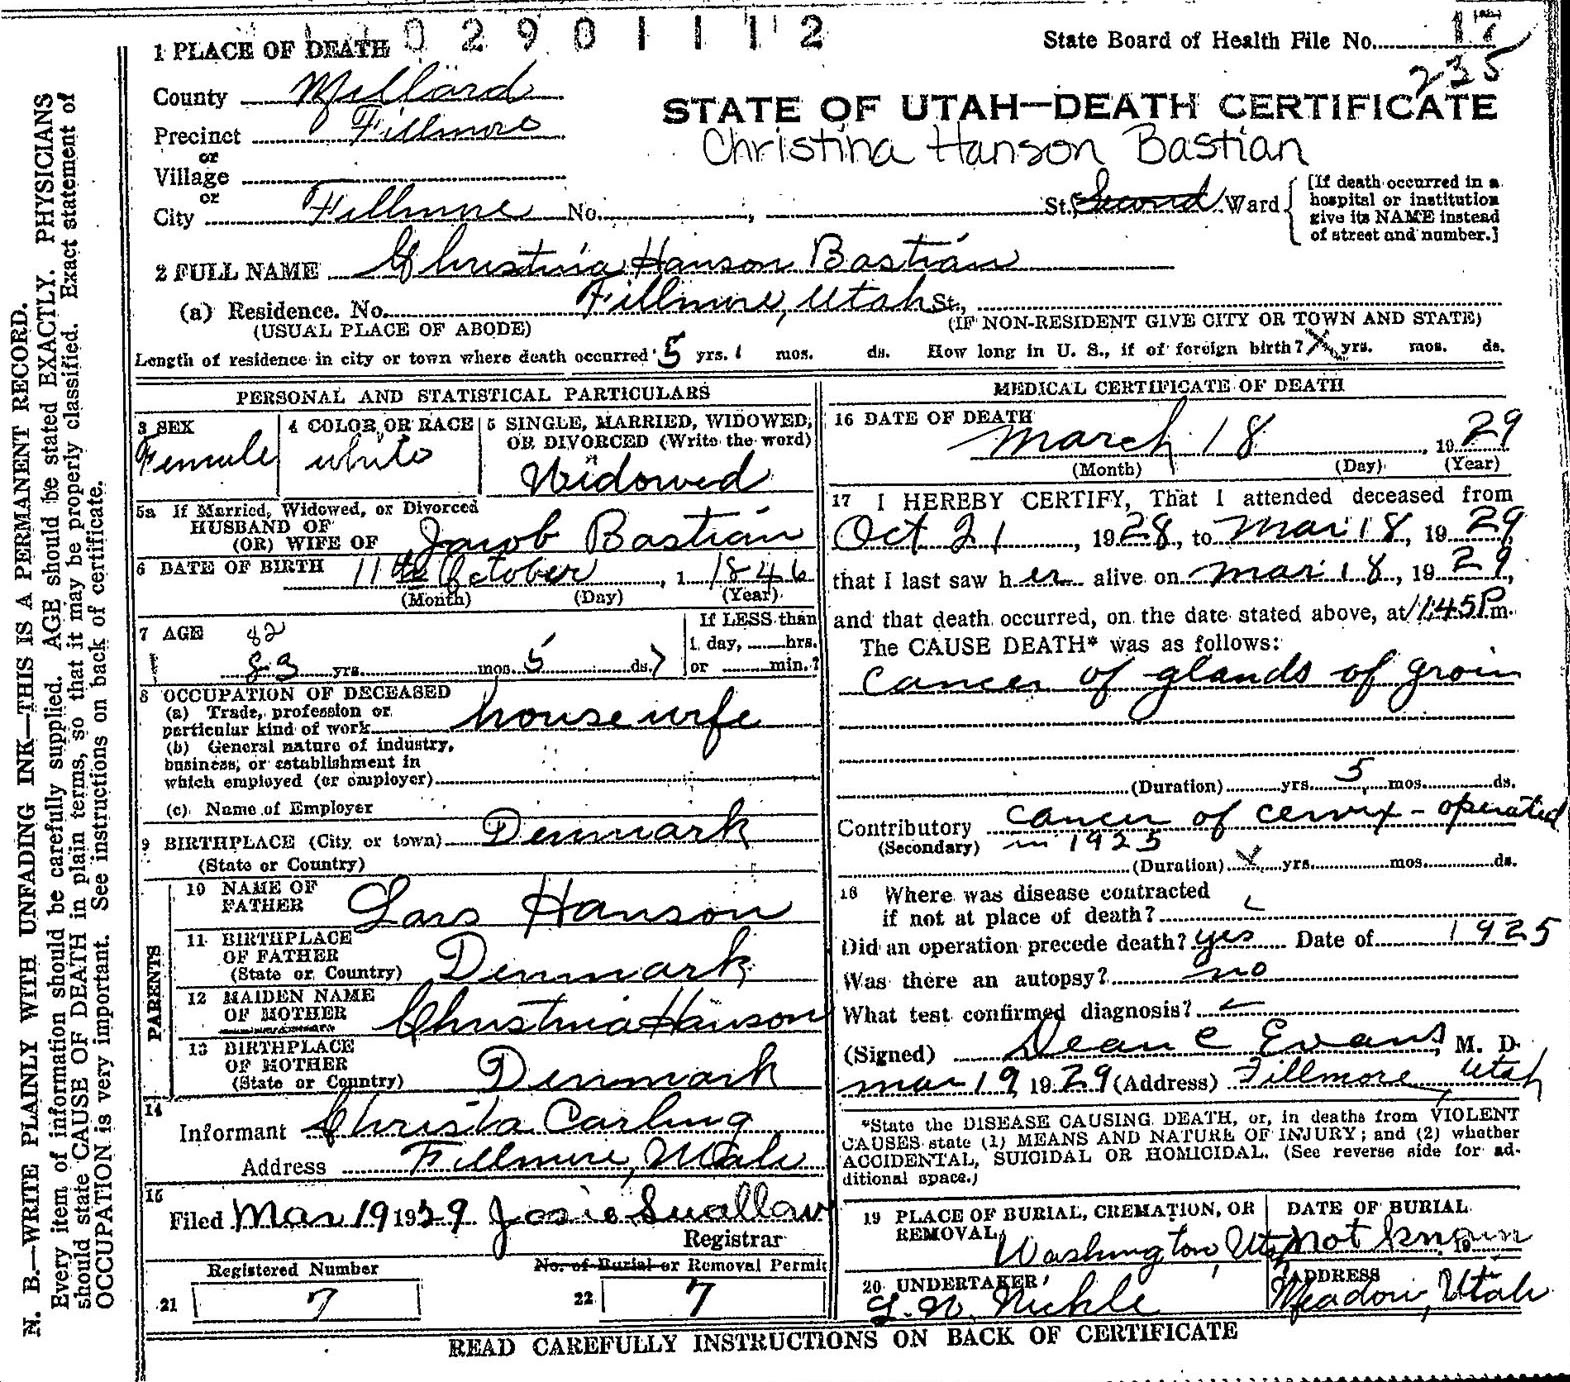 1 0 2 9 0 1 1 1 2
1 PLACE OF DEATH
State Board of Health File No. 17
235
County Millard
STATE OF UTAH—DEATH CERTIFICATE
Precinct Fillmore
Christina Hanson Bastian
or
Village
or
City Fillmore No. , St. Second Ward
[If death occurred in a hospital or institution give its NAME instead of street and number.]
2 FULL NAME Christina Hanson Bastian
(a) Residence. No. Fillmore, Utah St.,
(USUAL PLACE OF ABODE) (IF NON-RESIDENT GIVE CITY OR TOWN AND STATE)
Length of residence in city or town where death occurred 5 yrs. mos. ds. How long in U. S., if of foreign birth? X yrs. mos. ds.
PERSONAL AND STATISTICAL PARTICULARS
3 SEX
Female
4 COLOR OR RACE
white
5 SINGLE, MARRIED, WIDOWED,
OR DIVORCED (Write the word)
Widowed
5a If Married, Widowed, or Divorced
HUSBAND OF
(OR) WIFE OF Jacob Bastian
6 DATE OF BIRTH 11th October , 1 1846
(Month) (Day) (Year)
7 AGE 82
83 yrs. mos. 5 ds. 7
If LESS than
1 day, hrs.
or min.?
8 OCCUPATION OF DECEASED
(a) Trade, profession or
particular kind of work housewife
(b) General nature of industry,
business, or establishment in
which employed (or employer)
(c) Name of Employer
9 BIRTHPLACE (City or town) Denmark
(State or Country)
PARENTS
10 NAME OF
FATHER Lars Hanson
11 BIRTHPLACE
OF FATHER
(State or Country) Denmark
12 MAIDEN NAME
OF MOTHER Christina Hanson
13 BIRTHPLACE
OF MOTHER
(State or Country) Denmark
14
Informant Christa Carling
Address Fillmore, Utah
15
Filed Mar 19 1929 Josie Swallow
Registrar
Registered Number
21 7
No. of Burial or Removal Permit
22 7
MEDICAL CERTIFICATE OF DEATH
16 DATE OF DEATH
March 18 , 1929
(Month) (Day) (Year)
17 I HEREBY CERTIFY, That I attended deceased from
Oct 21 , 1928, to Mar 18, 1929,
that I last saw her alive on Mar 18, 1929,
and that death occurred, on the date stated above, at 1:45 P m.
The CAUSE DEATH* was as follows:
Cancer of glands of groin
(Duration) yrs. 5 mos. ds.
Contributory Cancer of cervix - operated
(Secondary) in 1925
(Duration) yrs. mos. ds.
18 Where was disease contracted
if not at place of death?
Did an operation precede death? yes Date of 1925
Was there an autopsy? no
What test confirmed diagnosis?
(Signed) Dean C Evans, M. D.
Mar 19, 1929 (Address) Fillmore, Utah
*State the DISEASE CAUSING DEATH, or, in deaths from VIOLENT
CAUSES state (1) MEANS AND NATURE OF INJURY; and (2) whether
ACCIDENTAL, SUICIDAL OR HOMICIDAL. (See reverse side for ad-
ditional space.)
19 PLACE OF BURIAL, CREMATION, OR
REMOVAL, Washington, Utah
DATE OF BURIAL
not known 19
20 UNDERTAKER
ADDRESS
Meadow, Utah
READ CAREFULLY INSTRUCTIONS ON BACK OF CERTIFICATE
N. B.—WRITE PLAINLY WITH UNFADING INK—THIS IS A PERMANENT RECORD.
Every item of information should be carefully supplied. AGE should be stated EXACTLY. PHYSICIANS
should state CAUSE OF DEATH in plain terms, so that it may be properly classified. Exact statement of
OCCUPATION is very important. See instructions on back of certificate.